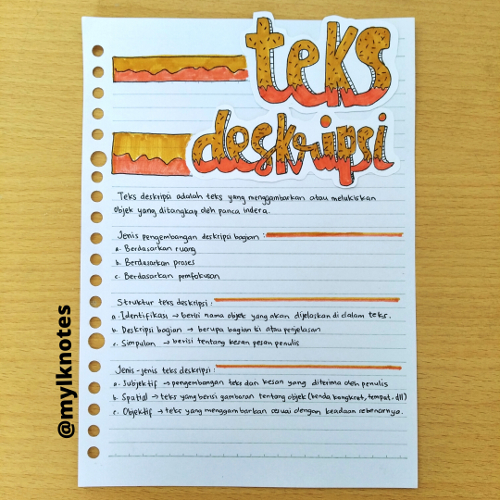 teks
deskripsi
Teks deskripsi adalah teks yang menggambarkan atau melukiskan
objek yang ditangkap oleh panca indera.
Jenis pengembangan deskripsi bagian :
a. Berdasarkan ruang
b. Berdasarkan proses
c. Berdasarkan pemfokusan
Struktur teks deskripsi :
a. Identifikasi → berisi nama objek yang akan dijelaskan di dalam teks.
b. Deskripsi bagian → berupa bagian isi atau penjelasan
c. Simpulan → berisi tentang kesan pesan penulis
Jenis-jenis teks deskripsi :
a. Subjektif → pengembangan teks dan kesan yang diterima oleh penulis
b. Spatial → teks yang berisi gambaran tentang objek (benda kongkrat, tempat, dll)
c. Objektif → teks yang menggambarkan sesuai dengan keadaan sebenarnya.
@mylknotes